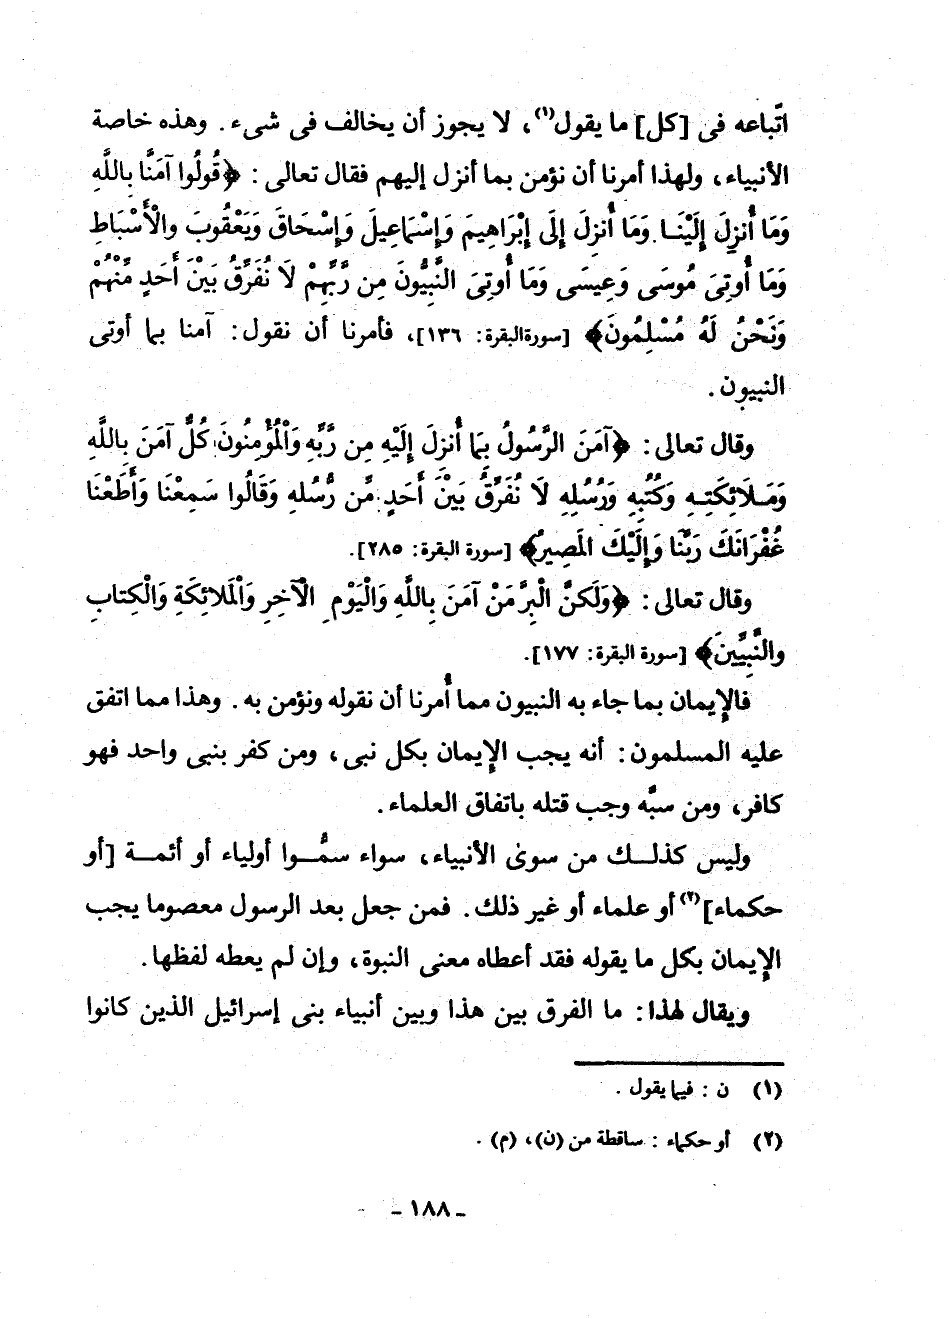 اتّباعه فى [كل] ما يقول(١)، لا يجوز أن يخالف فى شىء. وهذه خاصة
الأنبياء، ولهذا أمرنا أن نؤمن بما أنزل إليهم فقال تعالى: ﴿قُولُوا آمَنَّا بِاللَّهِ
وَمَا أُنزِلَ إِلَيْنَا وَمَا أُنزِلَ إِلَى إِبْرَاهِيمَ وَإِسْمَاعِيلَ وَإِسْحَاقَ وَيَعْقُوبَ والْأَسْبَاطِ
وَمَا أُوتِىَ مُوسَى وَعِيسَى وَمَا أُوتِىَ النَّبِيُّونَ مِن رَّبِّهِمْ لَا نُفَرِّقُ بَيْنَ أَحَدٍ مِّنْهُمْ
وَنَحْنُ لَهُ مُسْلِمُونَ﴾ [سورة البقرة: ١٣٦]، فأمرنا أن نقول: آمنا بما أوتى
النبيون.
وقال تعالى: ﴿آمَنَ الرَّسُولُ بِمَا أُنزِلَ إِلَيْهِ مِن رَّبِّهِ وَالْمُؤْمِنُونَ كُلٌّ آمَنَ بِاللَّهِ
وَمَلَائِكَتِهِ وَكُتُبِهِ وَرُسُلِهِ لَا نُفَرِّقُ بَيْنَ أَحَدٍ مِّن رُّسُلِهِ وَقَالُوا سَمِعْنَا وَأَطَعْنَا
غُفْرَانَكَ رَبَّنَا وَإِلَيْكَ الْمَصِيرُ﴾ [سورة البقرة: ٢٨٥].
وقال تعالى: ﴿وَلَكِنَّ الْبِرَّ مَنْ آمَنَ بِاللَّهِ وَالْيَوْمِ الْآخِرِ وَالْمَلائِكَةِ وَالْكِتَابِ
والنَّبِيِّينَ﴾ [سورة البقرة: ١٧٧].
فالإيمان بما جاء به النبيون مما أُمرنا أن نقوله ونؤمن به. وهذا مما اتفق
عليه المسلمون: أنه يجب الإيمان بكل نبى، ومن كفر بنبى واحد فهو
كافر، ومن سبَّه وجب قتله باتفاق العلماء.
وليس كذلك من سوى الأنبياء، سواء سمُّوا أولياء أو أئمة [أو
حكماء](٢) أو علماء أو غير ذلك. فمن جعل بعد الرسول معصوما يجب
الإيمان بكل ما يقوله فقد أعطاه معنى النبوة، وإن لم يعطه لفظها.
ويقال لهذا: ما الفرق بين هذا وبين أنبياء بنى إسرائيل الذين كانوا
(١) ن: فيما يقول.
(٢) أو حكماء: ساقطة من (ن)، (م).
ـ ١٨٨ ـ